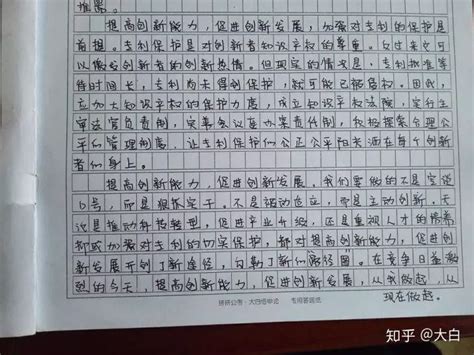 推需。
提高创新能力，促进创新发展，加强对专利的保护是
前提。专利保护是对创新者知识产权的尊重。反过来也可
以激发创新者的创新热情。但现实的情况是，专利批准等
待时间长，专利尚未得到保护，就可能已被侵权。因此，
应加大知识产权的保护力度，成立知识产权法院，实行主
审法官负责制，完善会议集办案责任制，积极探索合理公
平的管理制度，让专利保护的公正公平阳光洒在每个创新
者的身上。
提高创新能力，促进创新发展。我们要做的不是空谈
口号，而是狠抓实干。不是被动应立，而是主动创新。无
论是推动科技转型，促进产业升级，还是重视人才的培养
抑或加强对专利的切实保护，都对提高创新能力，促进创
新发展开创了新途径，勾勒了新的路径图。在竞争日益激
烈的今天，提高创新能力，促进创新发展，从我做起，从
现在做起。
妍妍公考·大白讲申论 专用答题纸
知乎 @大白